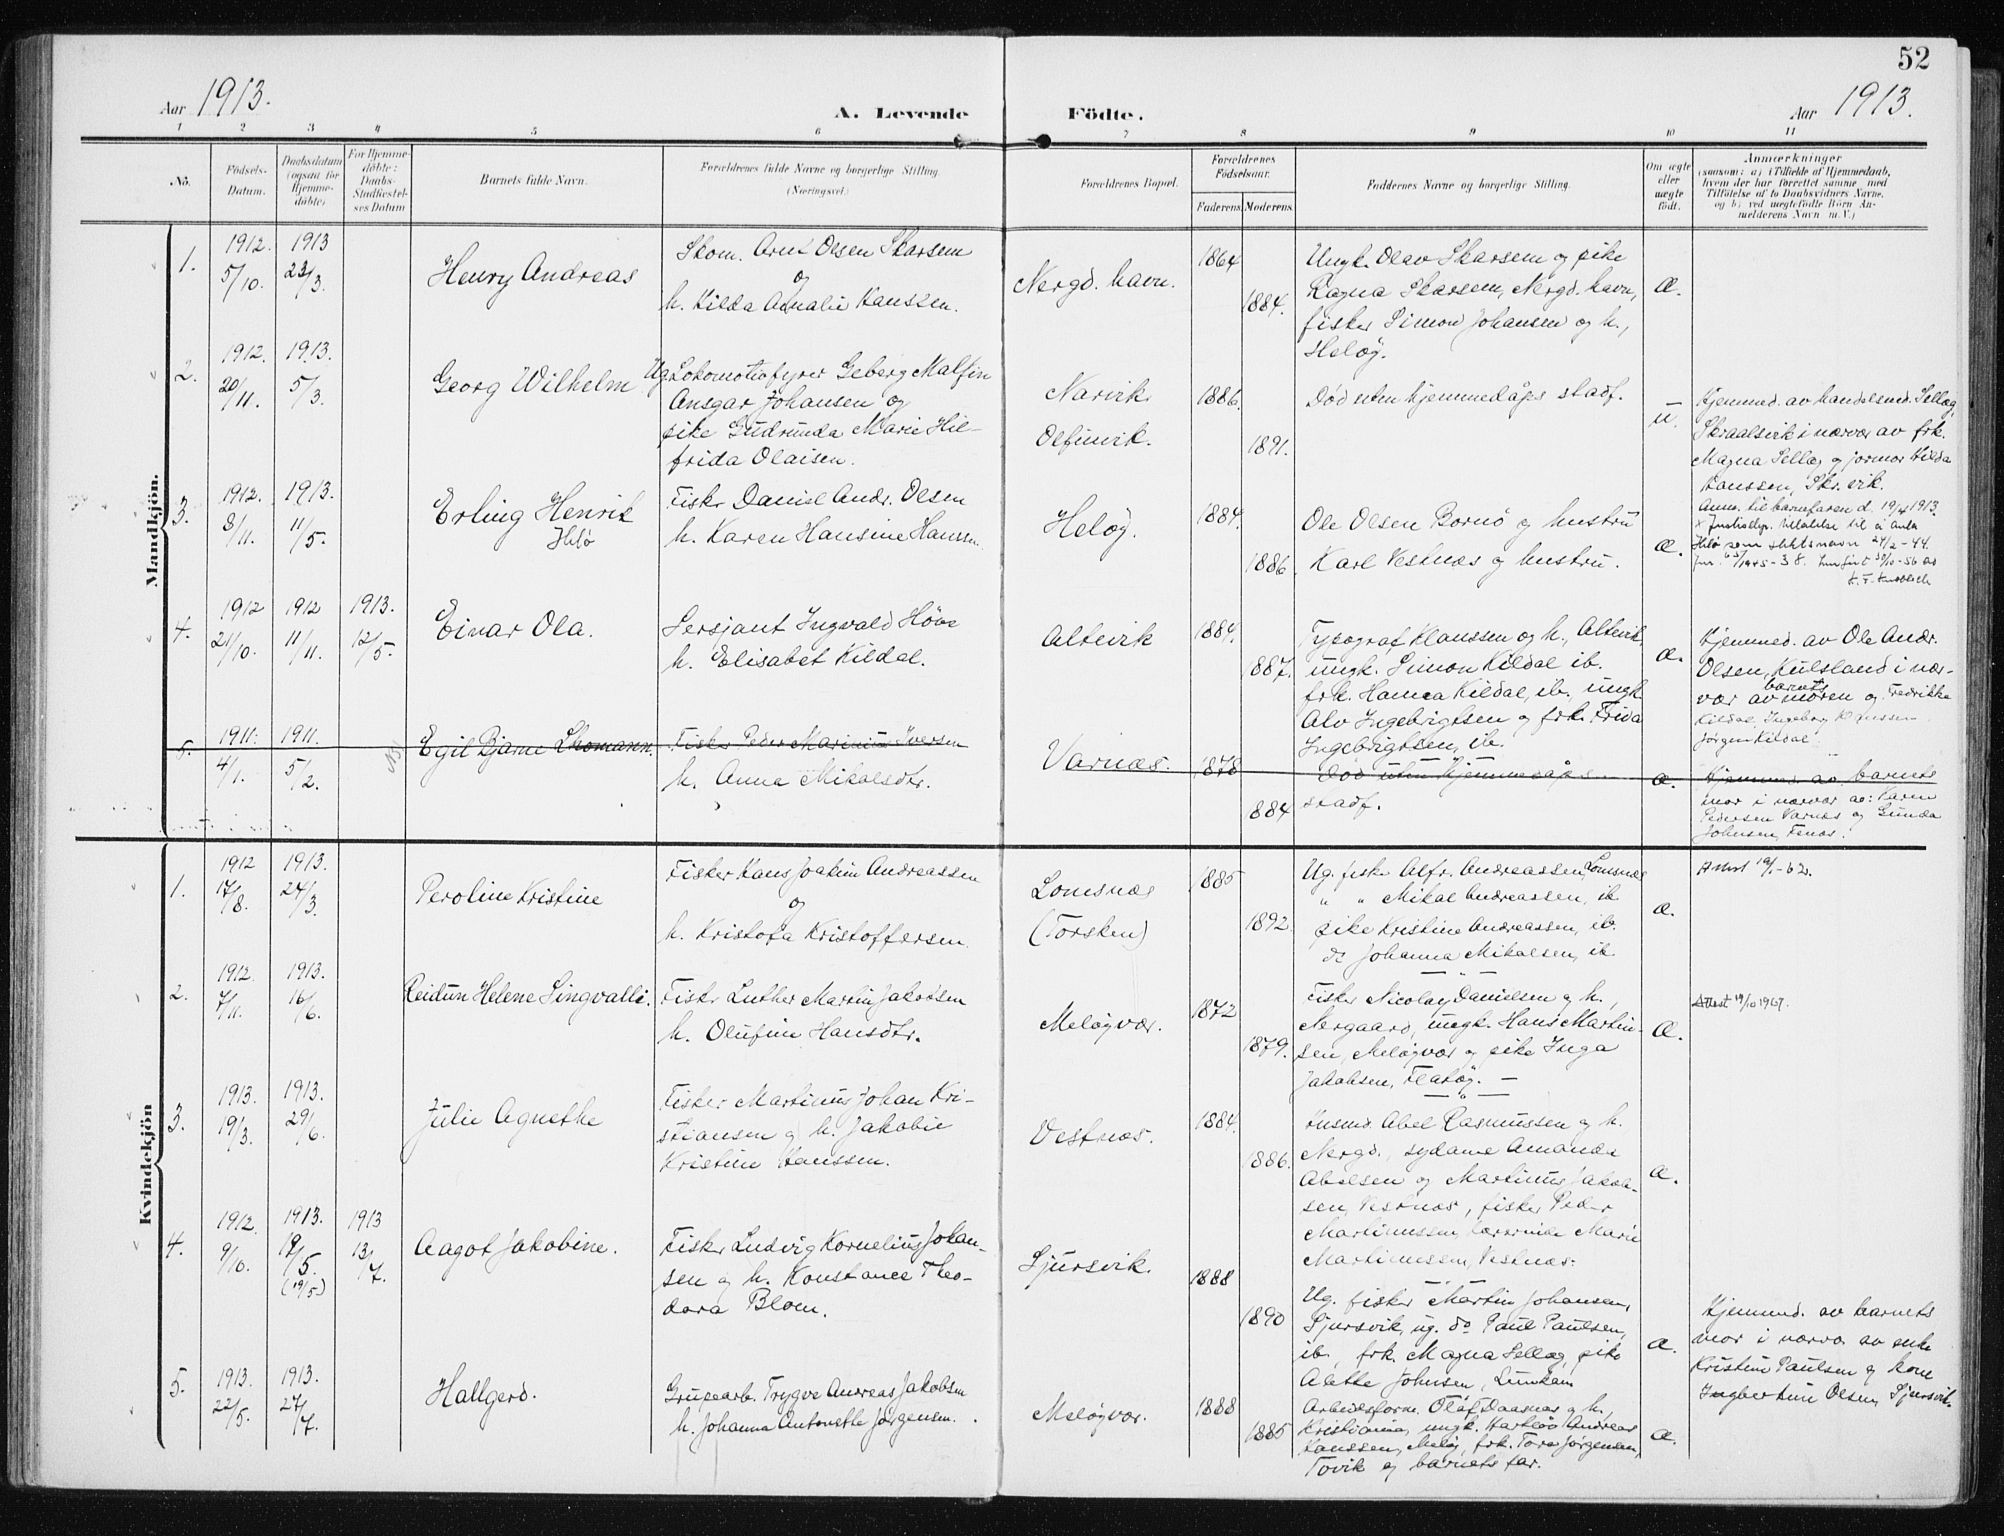 52
Aar 1913.
A. Levende Födte.
Aar 1913.
1 2 3 4 5 6 7 8 9 10 11
No.
Födsels-Datum.
Daabsdatum (ogsaa for Hjemme-döbte)
For Hjemme-döbte: Daabs-Stadfæstel-ses Datum
Barnets fulde Navn.
Forældrenes fulde Navne og borgerlige Stilling.
(Næringsvei.)
Forældrenes Bopæl.
Forældrenes Födselsaar.
Faderens. Moderens.
Faddernes Navne og borgerlige Stilling.
Om ægte eller uægte födt.
Anmærkninger
(saasom: a) i Tilfælde af Hjemmedaab, hvem der har forrettet samme, med Tilföielse af to Daabsvidners Navne, og b) ved uægtefödte Börn An-melderens Navn m. V.)
Mandkjön.
1. 1912. 5/10. 1913 23/3. Henry Andreas
Skom. Arnt Olsen Skarsem
og
h. Hilda Amalie Hanssen.
Nergd. havn.
1864
1884.
Ungk. Olav Skarsem og pike
Ragna Skarsem, Nergd. havn,
fisker Simon Johansen og h.,
Heløy.
æ.
2. 1912. 20/11. 1913. 5/3. Georg Wilhelm
Ug. Lokomotivfyrer Geberg Malfin
Ansgar Johansen og
pike Gudrunda Marie Hil-
frida Olaisen.
Narvik
Olfinvik.
1886.
1891.
Død uten hjemmedåps stadf.
u.
Hjemmed. av handelsmd. Sellæg,
Skraalsvik i nærvær av frk.
Magna Sellæg og jormor Hilda
Hanssen, Skr.vik.
Anm. til barnefaren d. 19/4 1913.
3. 1912. 8/11. 1913. 11/5. Erling Henrik
Helø
Fisker Daniel Andr. Olsen
h. Karen Hansine Hanssen.
Heløy.
1884.
1886.
Ole Olsen Bornø og hustru
Karl Vestnæs og hustru.
æ.
x Justisdep. tillatelse til å anta
Helø som slektsnavn 24/2-44.
4. 1912 21/10. 1912 11/11. 1913. 12/5. Einar Ola.
Sersjant Ingvald Høve
h. Elisabet Kildal.
Altevik
1884.
1887.
Typograf Klaussen og h., Altevik,
ungk. Simon Kildal ib.
frk. Hanna Kildal, ib. ungk.
Alv Ingebrigtsen og frk. Frida
Ingebrigtsen, ib.
æ.
Hjemmed. av Ole Andr.
Olsen, Kulsland i nær-
vær av barnets moren og Fredrikke
Kildal, Ingeborg Klaussen
Jørgen Kildal.
5. 1911. 4/1. 1911. 5/2. NB! Egil Bjarne Thomann.
Fisker Peder Marinius Iversen
h. Anna Mikalsdtr.
Varnæs.
1878
1884
Død uten hjemmedåps
stadf.
æ.
Hjemmed. av barnets
mor i nærvær av: Karen
Pedersen Varnæs og Gunda
Johnsen, Finnes.
Kvindekjön
1. 1912 17/8. 1913. 24/3. Peroline Kristine
Fisker Hans Joakim Andreassen
og
h. Kristofa Kristoffersen.
Lomsnæs
(Torsken)
1885
1892.
Ug. fisker Alfr. Andreassen, Lomsnæs
" " Mikal Andreassen, ib.
pike Kristine Andreassen, ib.
do Johanna Mikalsen, ib.
æ.
Attest 19/1-62.
2. 1912. 7/11. 1913. 16/6. Reidun Helene Lingvalli.
Fisker Luther Martin Jakobsen
h. Olufine Hansdtr.
Meløyvær.
1872
1879.
Fisker Nicolay Danielsen og h.,
Nergaard, ungk. Hans Martin-
sen, Meløyvær og pike Inga
Jakobsen, Flatøy. —
æ.
Attest 19/10 1967.
3. 1913. 19/3. 1913. 29/6. Julie Agnethe
Fisker Martinus Johan Kri-
stiansen og h. Jakobie
Kristine Hanssen.
Vestnæs.
1884.
1886.
Husmd. Abel Rasmussen og h.
Nergd., sydame Amanda
Abelsen og Martinus Jakob-
sen, Vestnæs, fisker Peder
Martinussen, lærerinde Marie
Martinussen, Vestnæs.
æ.
4. 1912. 9/10. 1913. 19/5. (19/5) 1913 13/7. Aagot Jakobine.
Fisker Ludvig Kornelius Johan-
sen og h. Konstance Theo-
dora Blom.
Sjursvik.
1888
1890
Ug. fisker Martin Johansen,
Sjursvik, ug. do Paul Paulsen,
ib., frk. Magna Sellæg, pike
Alette Johnsen, Lunkam
æ.
Hjemmed. av barnets
mor i nærvær av enke
Kristine Paulsen og kone
Ingbertine Olsen, Sjursvik.
5. 1913. 22/5. 1913. 27/7. Hallgerd.
Grupearb. Trygve Andreas Jakobsen
h. Johanna Antonette Jørgensen.
Meløyvær.
1888
1885
Arbeidsform. Olaf Daasnes og h.,
Kristiania, ungk. Hartløv Andreas
Hanssen, Meløy, frk. Tora Jørgensen,
Tovik og barnets far.
æ.